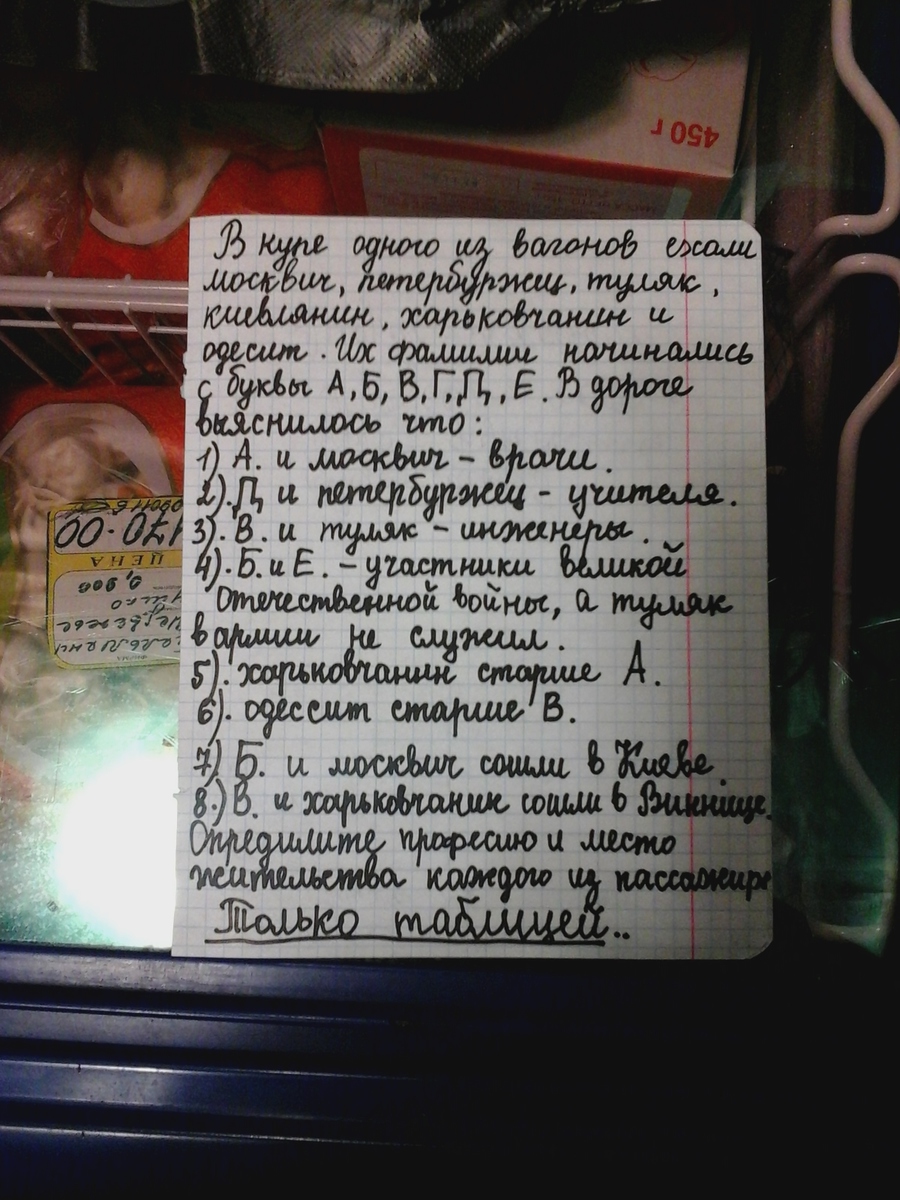 450 г
В купе одного из вагонов ехали
москвич, петербуржец, туляк,
киевлянин, харьковчанин и
одесит. Их фамилии начинались
с буквы А, Б, В, Г, Д, Е. В дороге
выяснилось что:
1) А. и москвич – врачи.
2). Д и петербуржец – учителя.
3). В. и туляк – инженеры.
4). Б. и Е. – участники великой
Отечественной войны, а туляк
в армии не служил.
5). харьковчанин старше А.
6). одессит старше В.
7) Б. и москвич сошли в Киеве
8.) В. и харьковчанин сошли в Виннице.
Опредилите професию и место
жительства каждого из пассажир
Только таблицей..
170-00
ЦЕНА
0,900